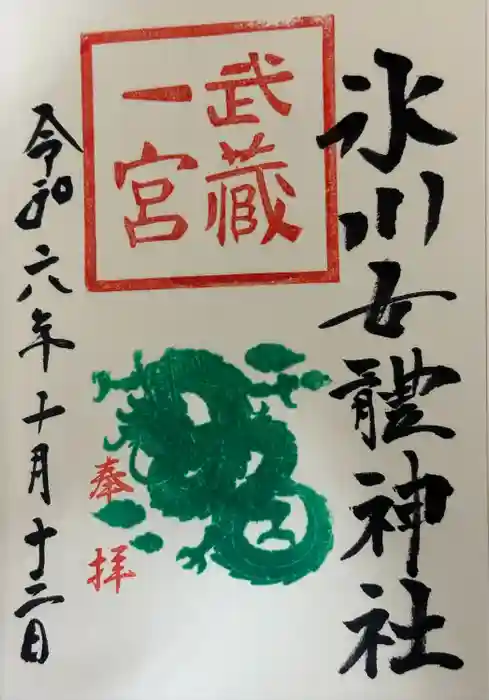 氷川女體神社
武蔵
一宮
奉拝
令和六年十月十三日